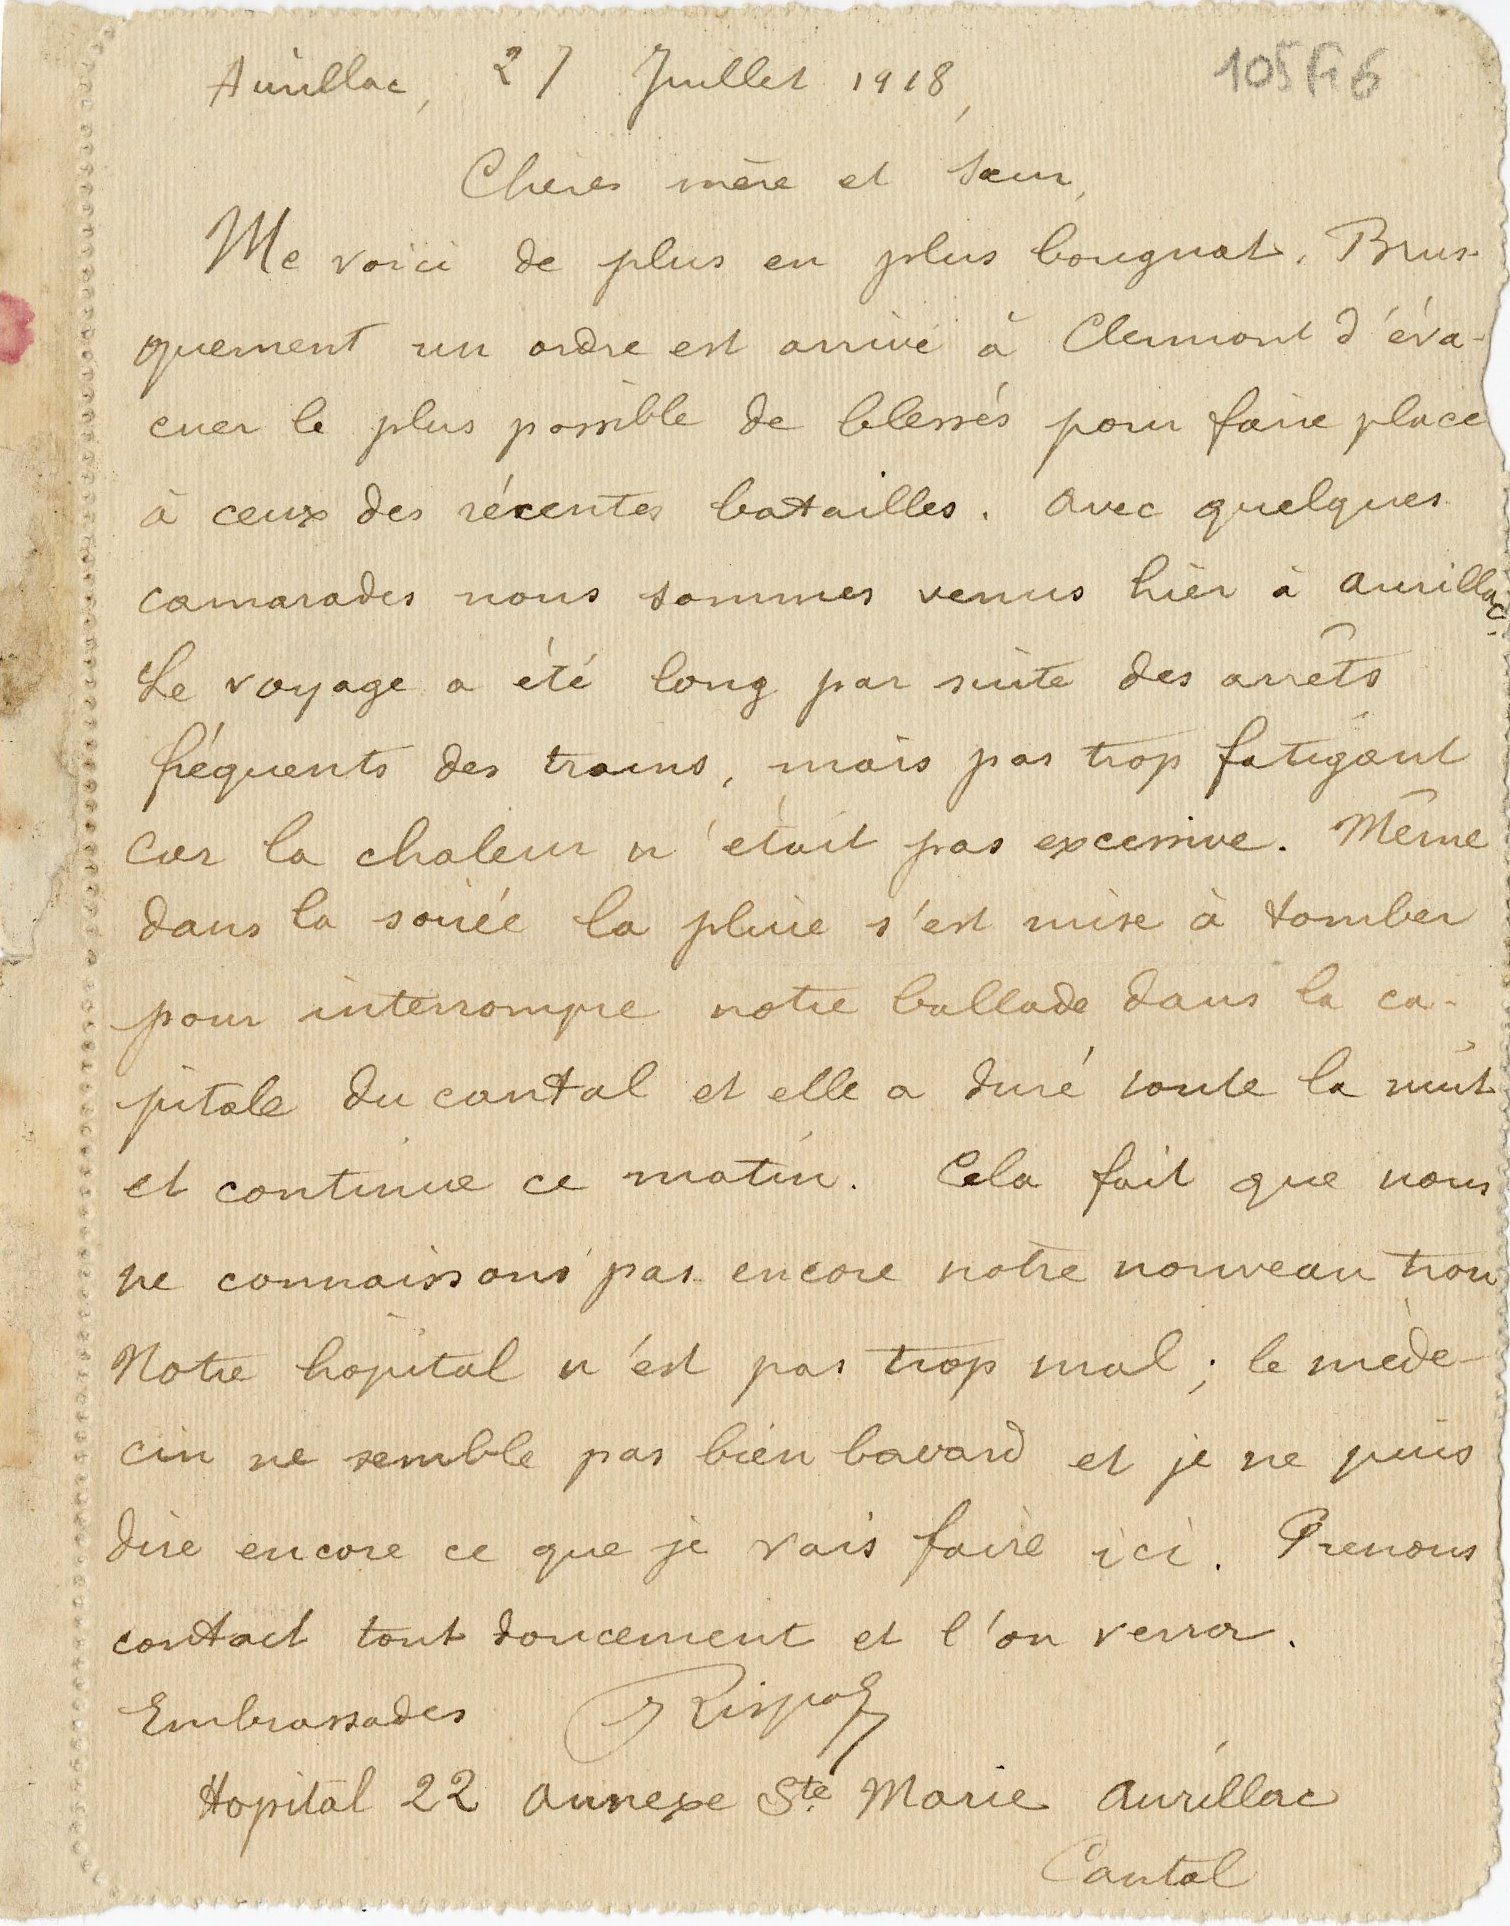 Aurillac, 27 Juillet 1918,
105 Fi 6
Chères mère et sœur,
Me voici de plus en plus bougnat. Brus-
quement un ordre est arrivé à Clermont d'éva-
cuer le plus possible de blessés pour faire place
à ceux des récentes batailles. Avec quelques
camarades nous sommes venus hier à Aurillac.
Le voyage a été long par suite des arrêts
fréquents des trains, mais pas trop fatigant
car la chaleur n'était pas excessive. Même
dans la soirée la pluie s'est mise à tomber
pour interrompre notre ballade dans la ca-
pitale du cantal et elle a duré toute la nuit
et continue ce matin. Cela fait que nous
ne connaissons pas encore notre nouveau trou
Notre hôpital n'est pas trop mal ; le méde-
cin ne semble pas bien bavard et je ne puis
dire encore ce que je vais faire ici. Prenons
contact tout doucement et l'on verra.
Embrassades JRispal
Hopital 22 annexe Ste Marie Aurillac
Cantal